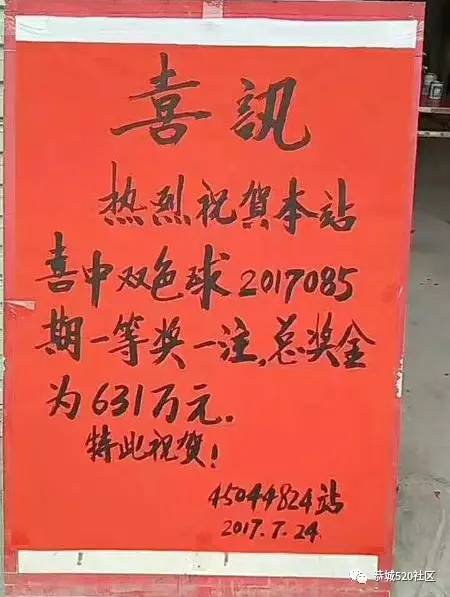 喜訊
热烈祝贺本站
喜中双色球2017085
期一等奖一注,总奖金
为631万元.
特此祝贺!
45044824站
2017.7.24
恭城520社区